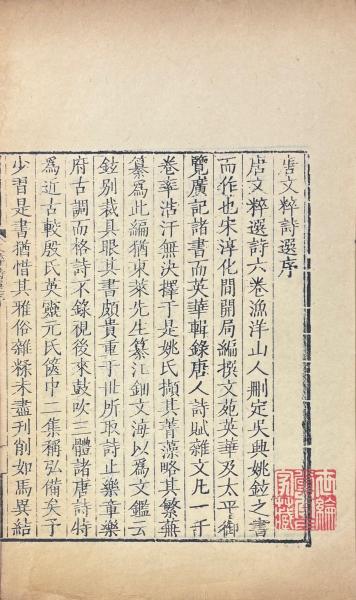 唐文粹詩選序
唐文粹選詩六卷漁洋山人刪定吳興姚鉉之書
而作也宋淳化間開局編撰文苑英華及太平御
覽廣記諸書而英華輯錄唐人詩賦雜文凡一千
卷率浩汗無決擇于是姚氏擷其菁藻略其繁蕪
纂為此編猶東萊先生纂江鈿文海以為文鑑云
鉉別裁具眼其書頗貴重于世所取詩止樂章樂
府古調而格詩不錄視後來鼓吹三體諸唐詩特
為近古較殷氏英靈元氏篋中二集稱弘備矣予
少習是書猶惜其雅俗雜糅未盡刊削如馬異結